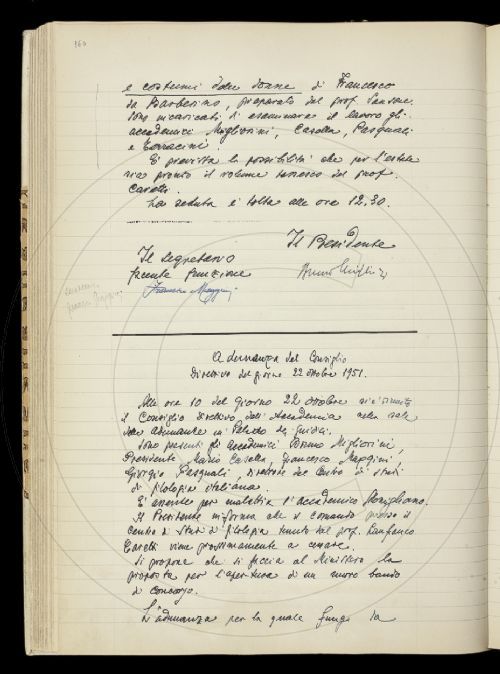 160
e costumi delle donne di Francesco
da Barberino, preparato dal prof. Sansone.
Sono incaricati d'esaminare il lavoro gli
accademici Migliorini, Casella, Pasquali
e Terracini.
E' prevista la possibilità che per l'estate
sia pronto il volume tassesco del prof.
Caretti.
La seduta è tolta alle ore 12,30.
Il Presidente
Il Segretario
facente funzione
Bruno Migliorini
Francesco Maggini
Adunanza del Consiglio
Direttivo del giorno 22 ottobre 1951.
Alle ore 10 del giorno 22 ottobre si è riunito
il Consiglio Direttivo dell'Accademia nella sala
delle adunanze in Palazzo dei Giudici.
Sono presenti gli accademici Bruno Migliorini,
Presidente, Mario Casella, Francesco Maggini,
Giorgio Pasquali, Direttore del Centro di studi
di filologia italiana.
E' assente per malattia l'accademico
Il Presidente informa che il comando presso il
Centro di Studi di filologia tenuto dal prof. Lanfranco
Caretti viene prossimamente a cessare.
Si propone che si faccia al Ministero la
proposta per l'apertura di un nuovo bando
di concorso.
L'adunanza per la quale funge da